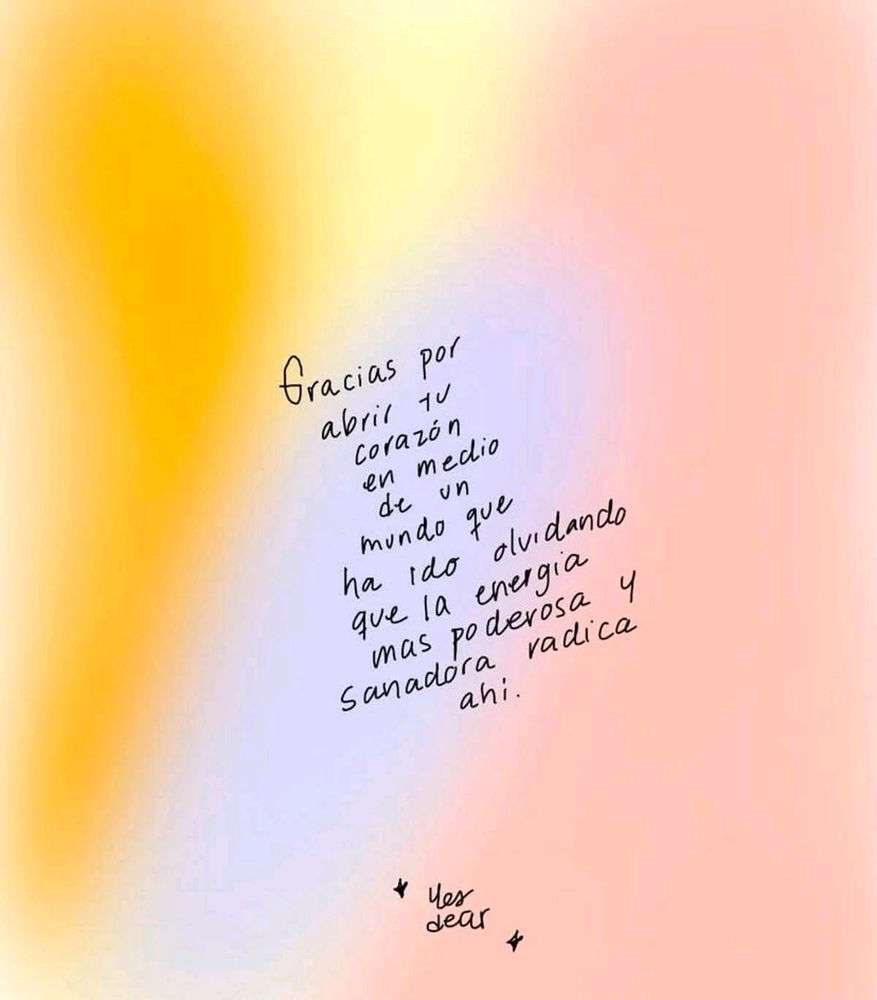 Gracias por
abrir tu
corazón
en medio
de un
mundo que
ha ido olvidando
que la energia
mas poderosa y
sanadora radica
ahi.
Yes
dear